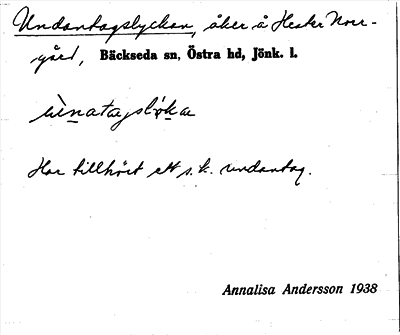 Undantagslyckan, åker å Hester Norr-
gård, Bäckseda sn, Östra hd, Jönk. l.
Har tillhört ett s.k. undantag.
Annalisa Andersson 1938